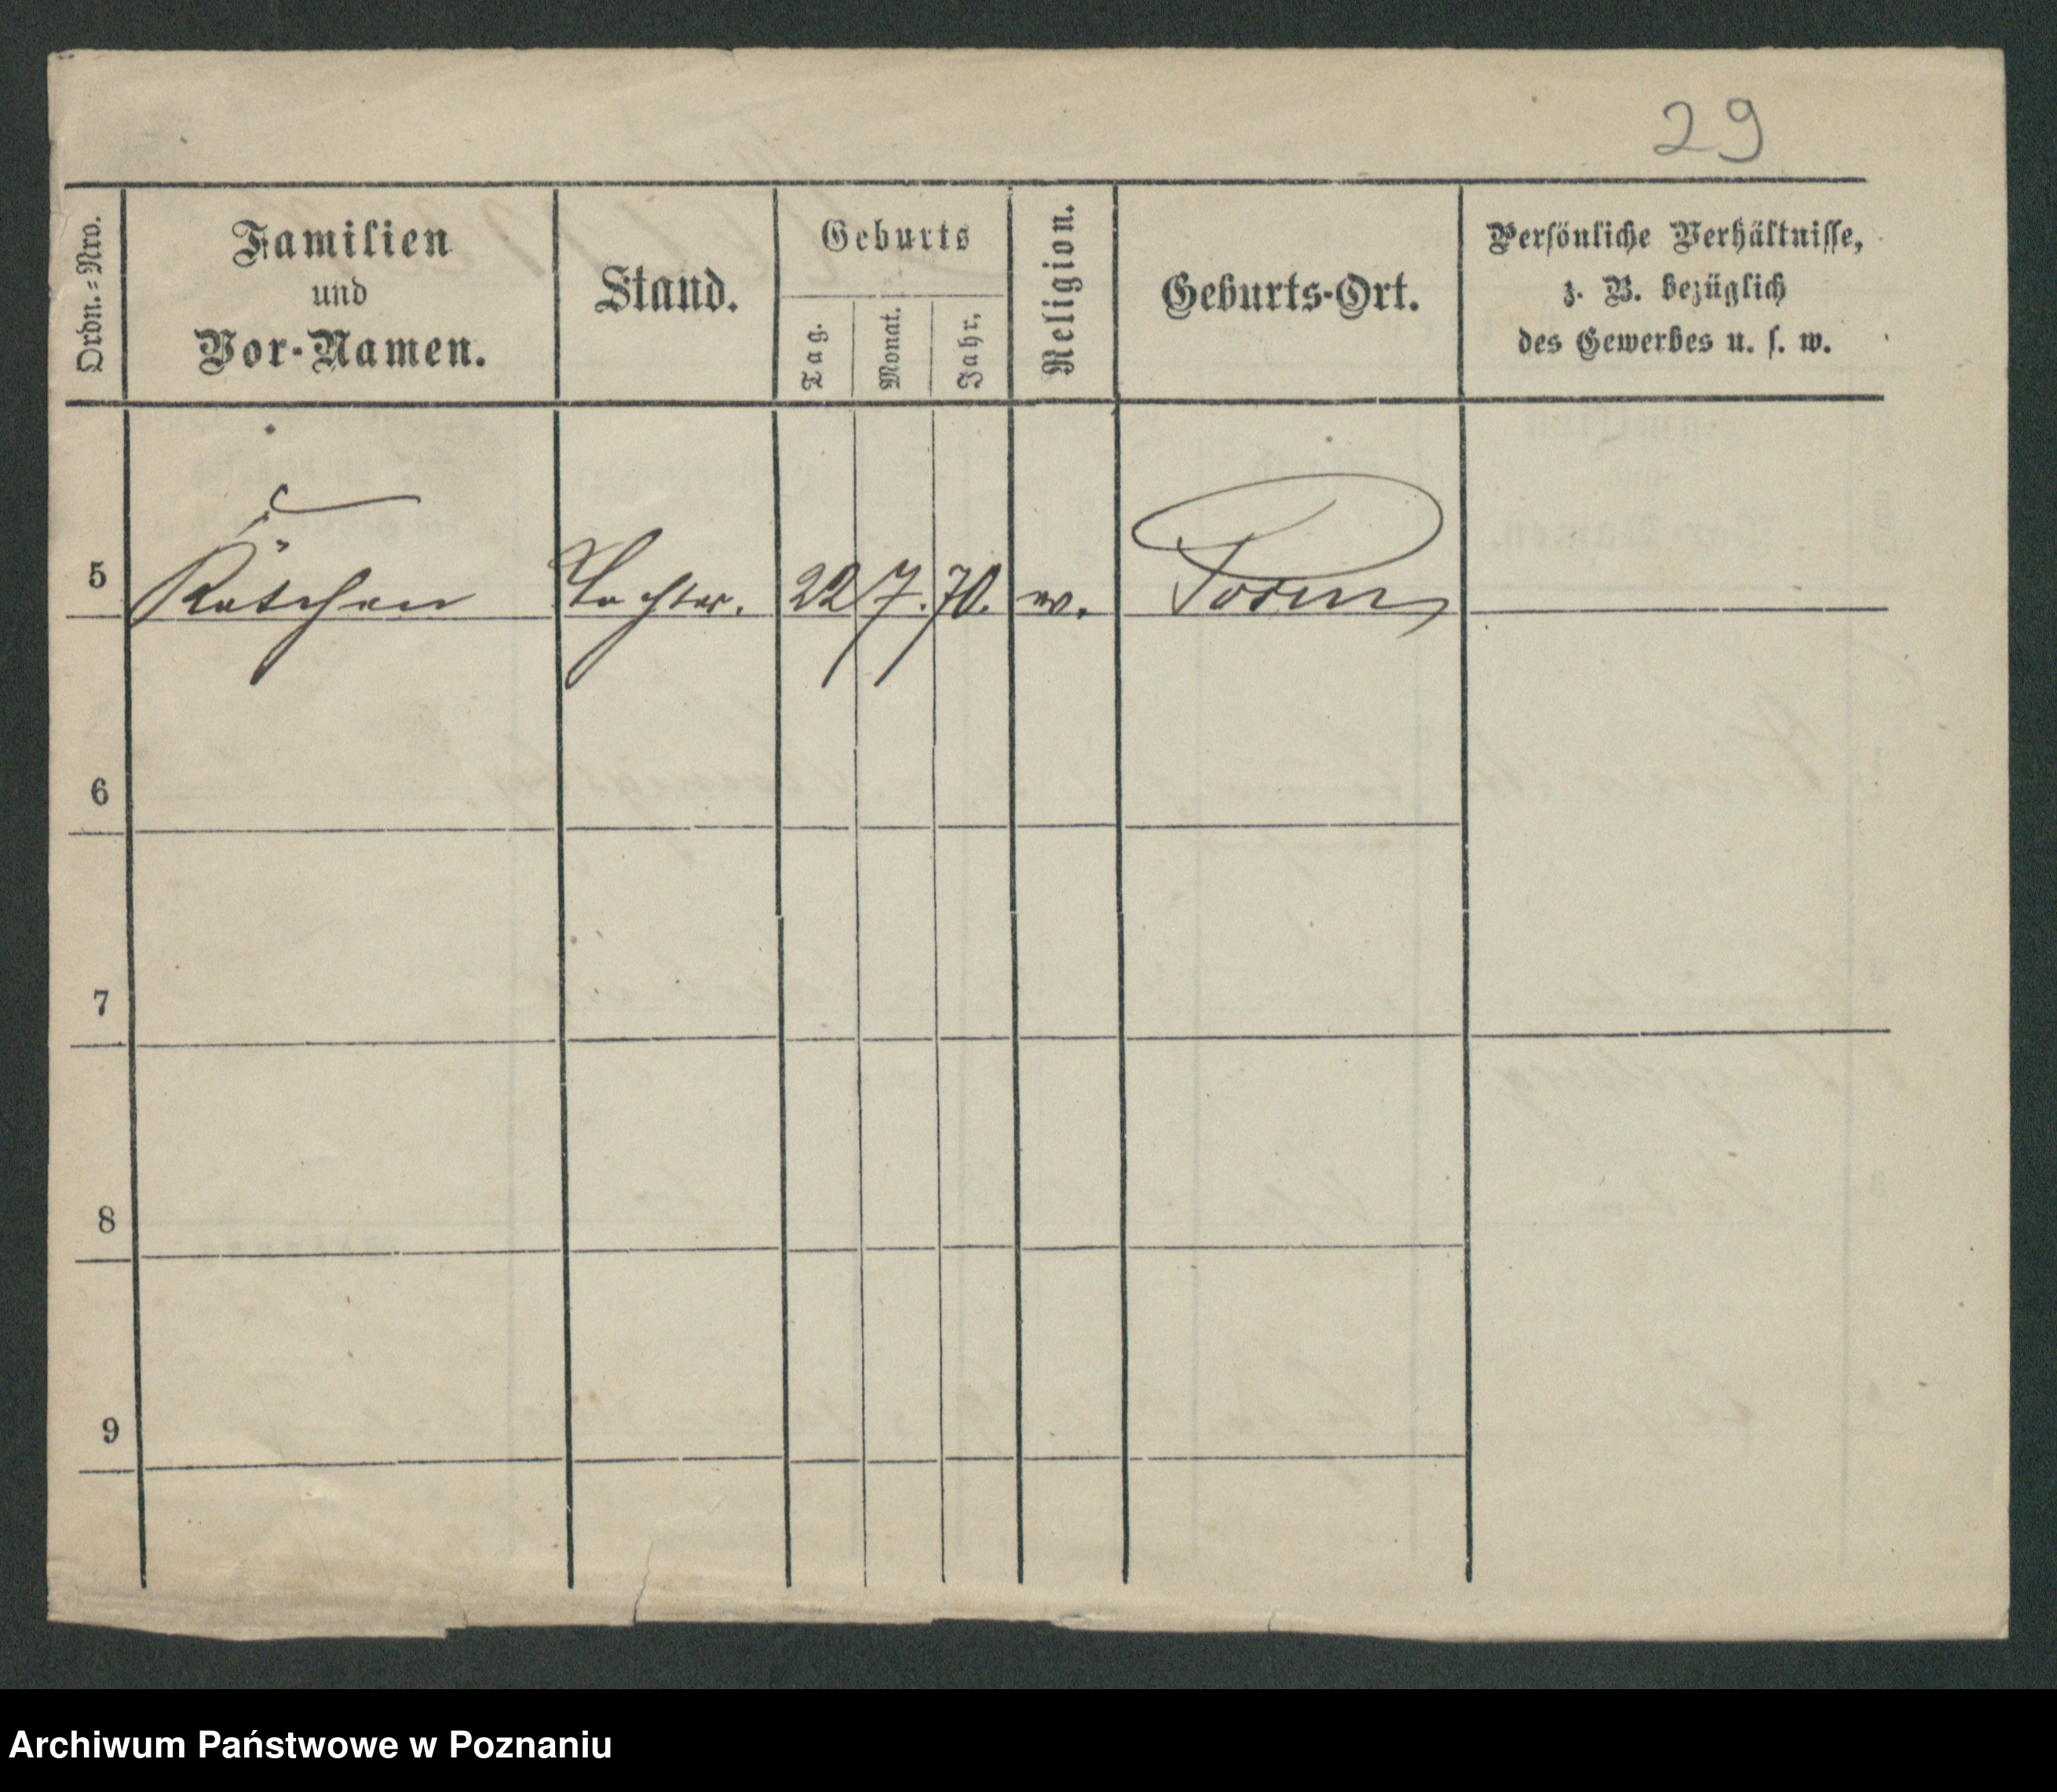 29
Ordn.-Nro.
Familien
und
Vor-Namen.
Stand.
Geburts
Tag.
Monat.
Jahr.
Religion.
Geburts-Ort.
Persönliche Verhältnisse,
z. B. bezüglich
des Gewerbes u. s. w.
5 Tochter. 22 7. 70. Posen
6
7
8
9
Archiwum Państwowe w Poznaniu